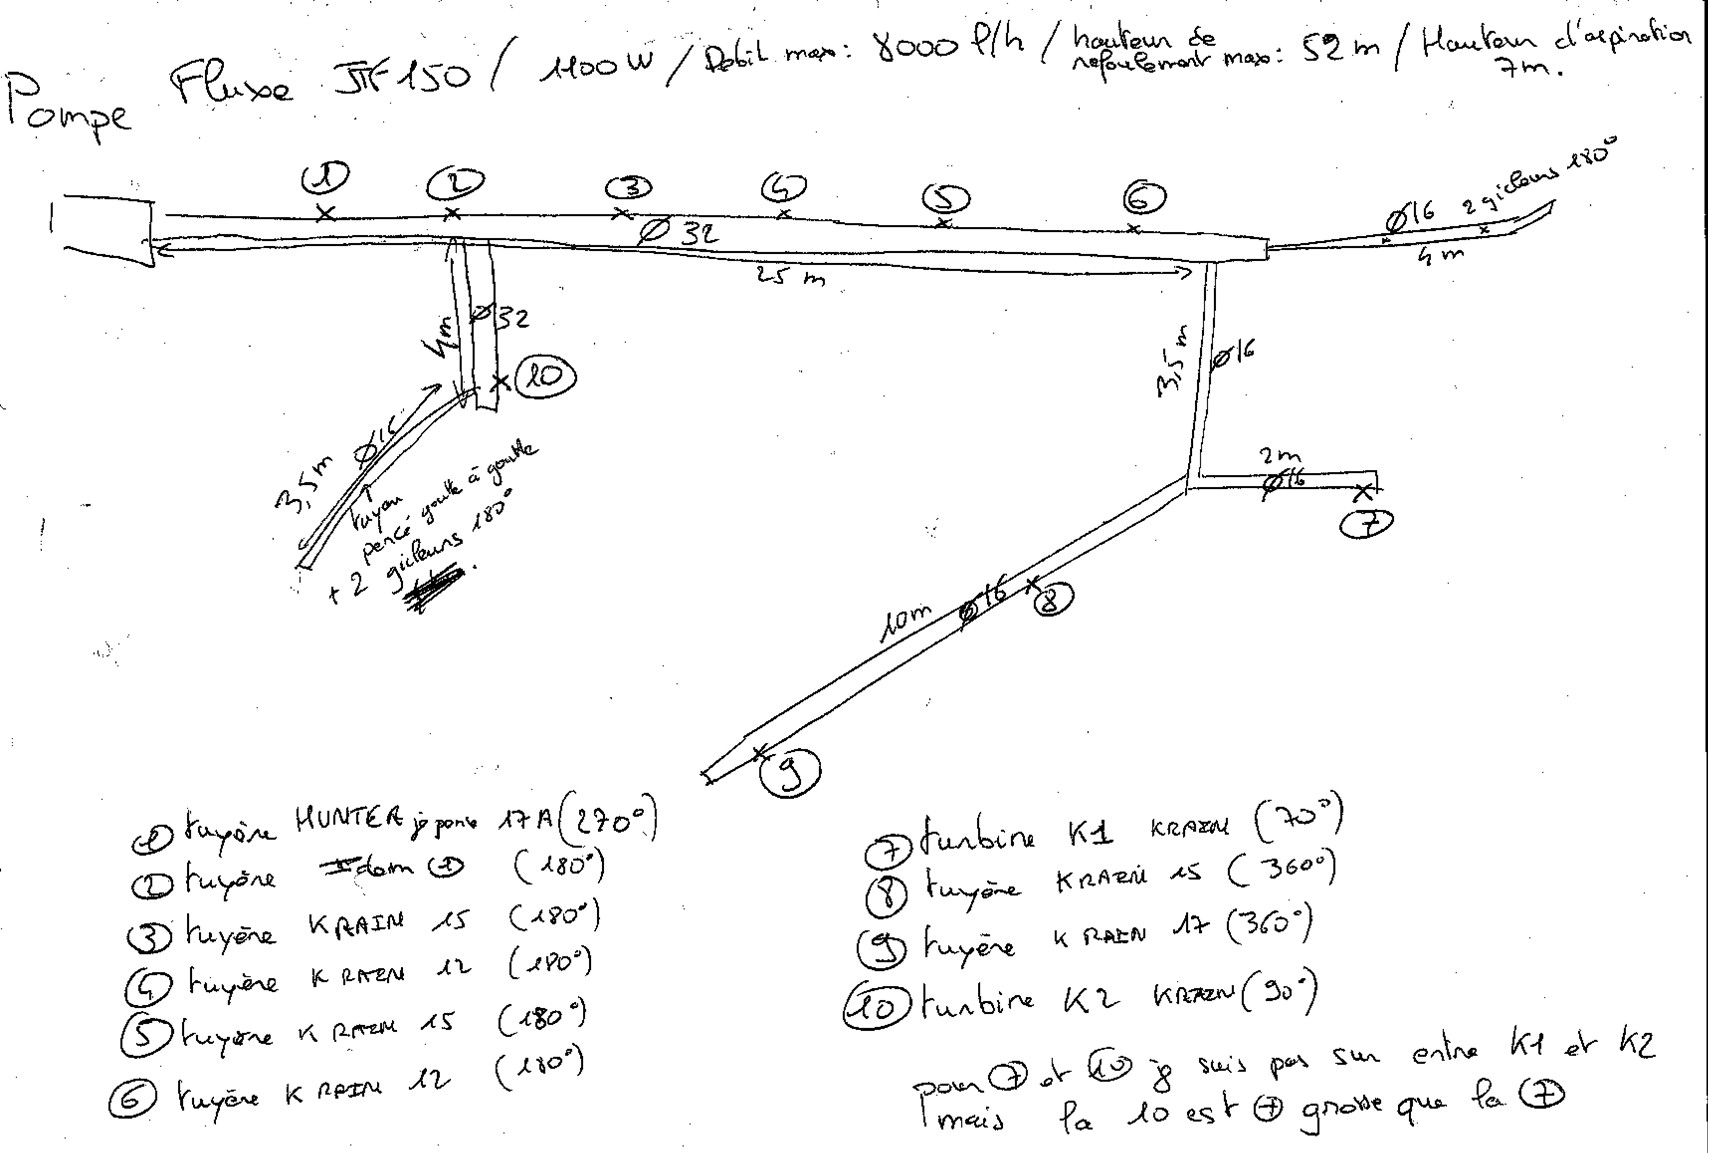 Pompe Fluxe JET 150 / 1100 W / Débit max : 8000 l/h / hauteur de refoulement max : 52 m / Hauteur d'aspiration 7m.
① ② ③ ④ ⑤ ⑥
Ø 32
25 m
Ø16 2 gicleurs 180°
4 m
4m
Ø 32
⑩
3,5 m
Ø16
3,5 m
Ø16
tuyau
percé goutte à goutte
+ 2 gicleurs 180°
2m
Ø16
⑦
10m
Ø16
⑧
⑨
① tuyère HUNTER je pense 17A (270°)
② tuyère Idem ① (180°)
③ tuyère KRAIN 15 (180°)
④ tuyère KRAIN 12 (180°)
⑤ tuyère KRAIN 15 (180°)
⑥ tuyère KRAIN 12 (180°)
⑦ turbine K1 KRAIN (70°)
⑧ tuyère KRAIN 15 (360°)
⑨ tuyère KRAIN 17 (360°)
⑩ turbine K2 KRAIN (90°)
pour ⑦ et ⑩ je suis pas sur entre K1 et K2
mais la 10 est + grosse que la ⑦